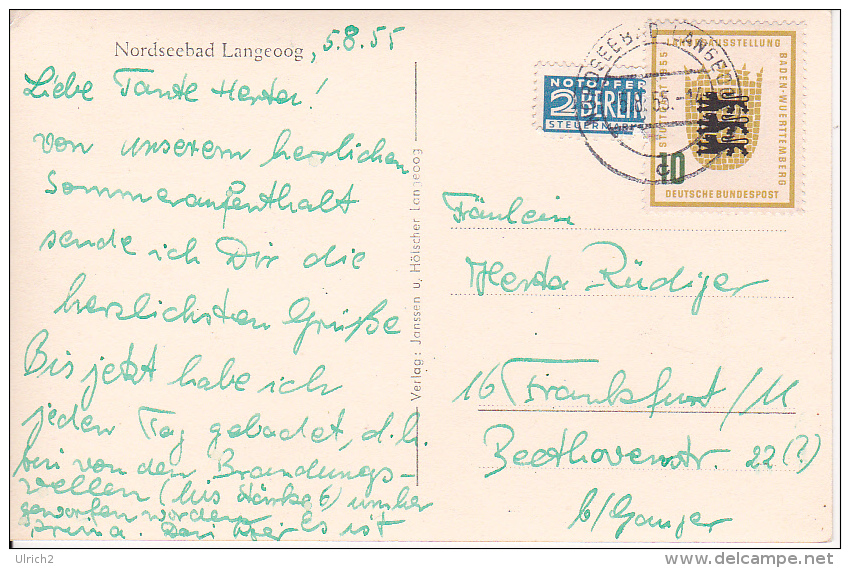 Nordseebad Langeoog, 5.8.55
Liebe Tante Herta!
Von unserem herrlichen
Sommeraufenthalt
sende ich Dir die
herzlichsten Grüße
Bis jetzt habe ich
jeden Tag gebadet, d.h.
bin von den Brandungs-
wellen (bis Stärke 6) umher
geworfen worden. Es ist
prima.
Verlag: Janssen u. Hölscher Langeoog
NOTOPFER
2 BERLIN
STEUERMARKE
NORDSEEBAD LANGEOOG
LANDESAUSSTELLUNG
BADEN-WUERTTEMBERG
STUTTGART 1955
10
DEUTSCHE BUNDESPOST
Fräulein
Herta Rüdiger
16 Frankfurt/M
Beethovenstr. 22 (?)
b/Ganzer
Ulrich2
delcampe.net